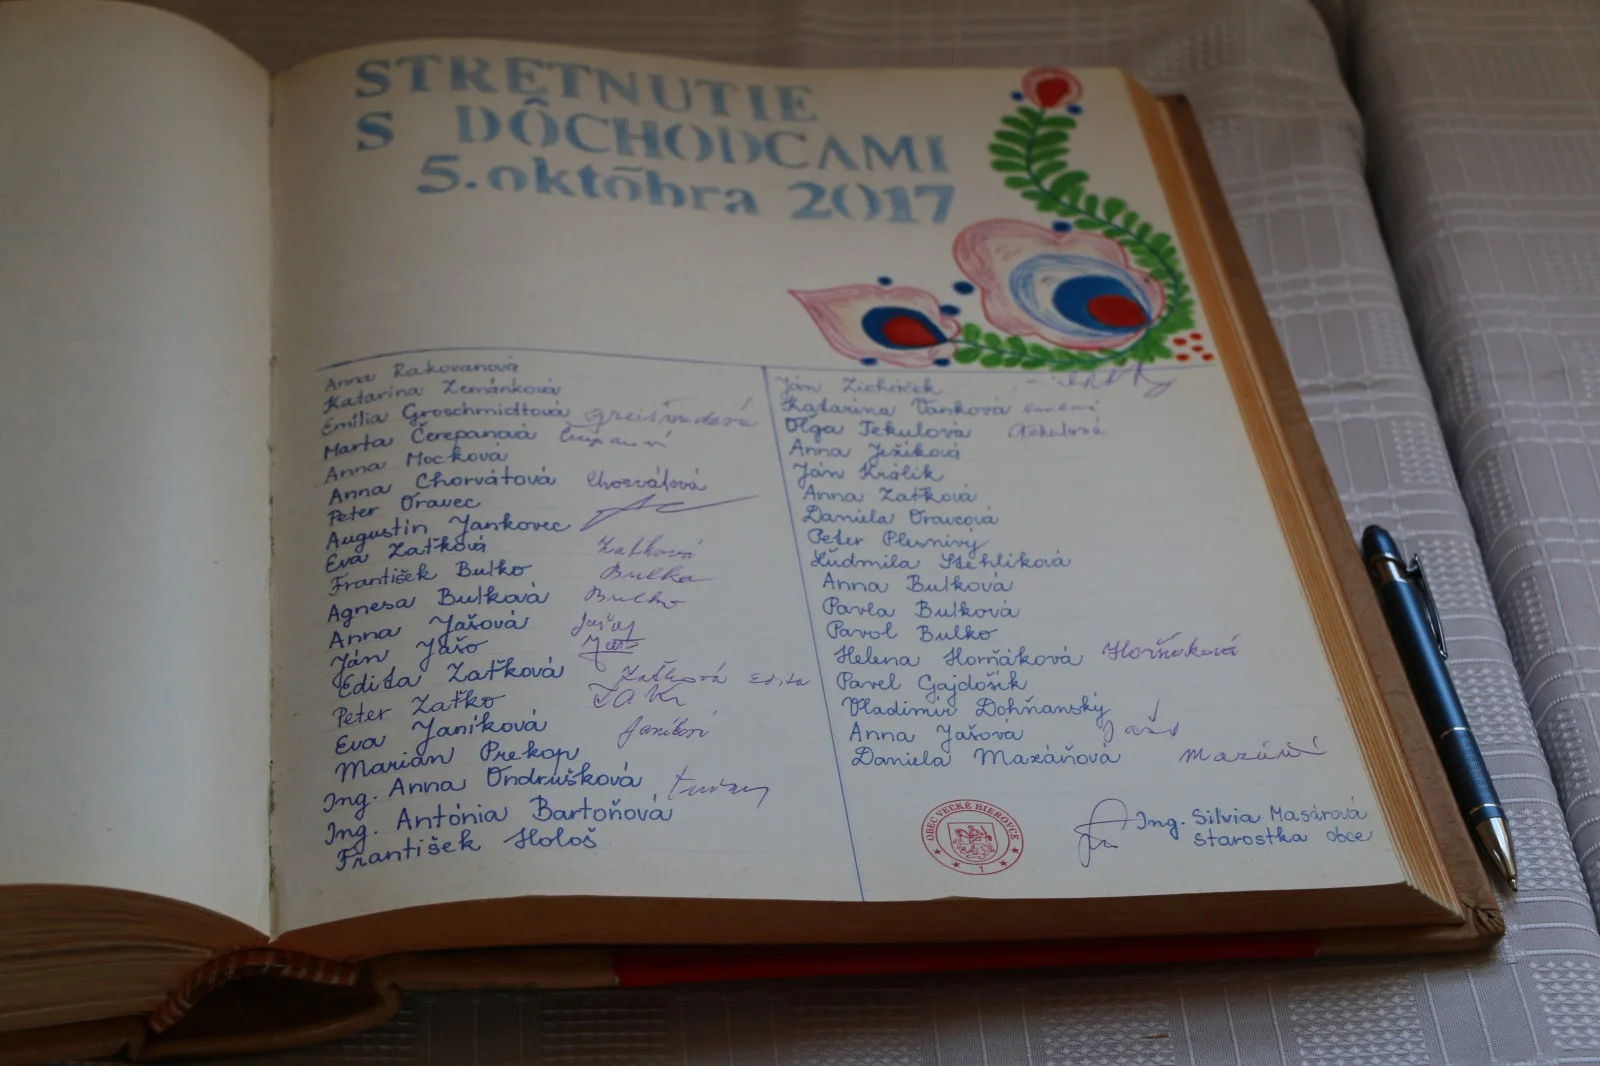 STRETNUTIE
S DÔCHODCAMI
5. októbra 2017
Anna Rakovanová
Katarína Zemánková
Emília Groschmidtová
Marta Čerepanová
Anna Mocková
Anna Chorvátová Chorvátová
Peter Oravec
Augustín Jankovec
Eva Zaťková Zaťková
František Buľko Bulka
Agnesa Buľková Bulko
Anna Jašová
Ján Jašo
Edita Zaťková Zaťková Edita
Peter Zaťko
Eva Janíková
Marián Prekop
Ing. Anna Ondrušková
Ing. Antónia Bartoňová
František Hološ
Ján Zicháček
Katarína Vanková
Oľga Tekulová Tekulová
Anna Ježíková
Ján Králik
Anna Zaťková
Daniela Oravcová
Peter Plesnivý
Ľudmila Stehlíková
Anna Buľková
Pavla Buľková
Pavol Buľko
Helena Horňáková Horňáková
Pavel Gajdošík
Vladimír Dohňanský
Anna Jašová
Daniela Mazáňová
OBEC VEĽKÉ BIEROVCE
1
Ing. Silvia Masárová
starostka obce